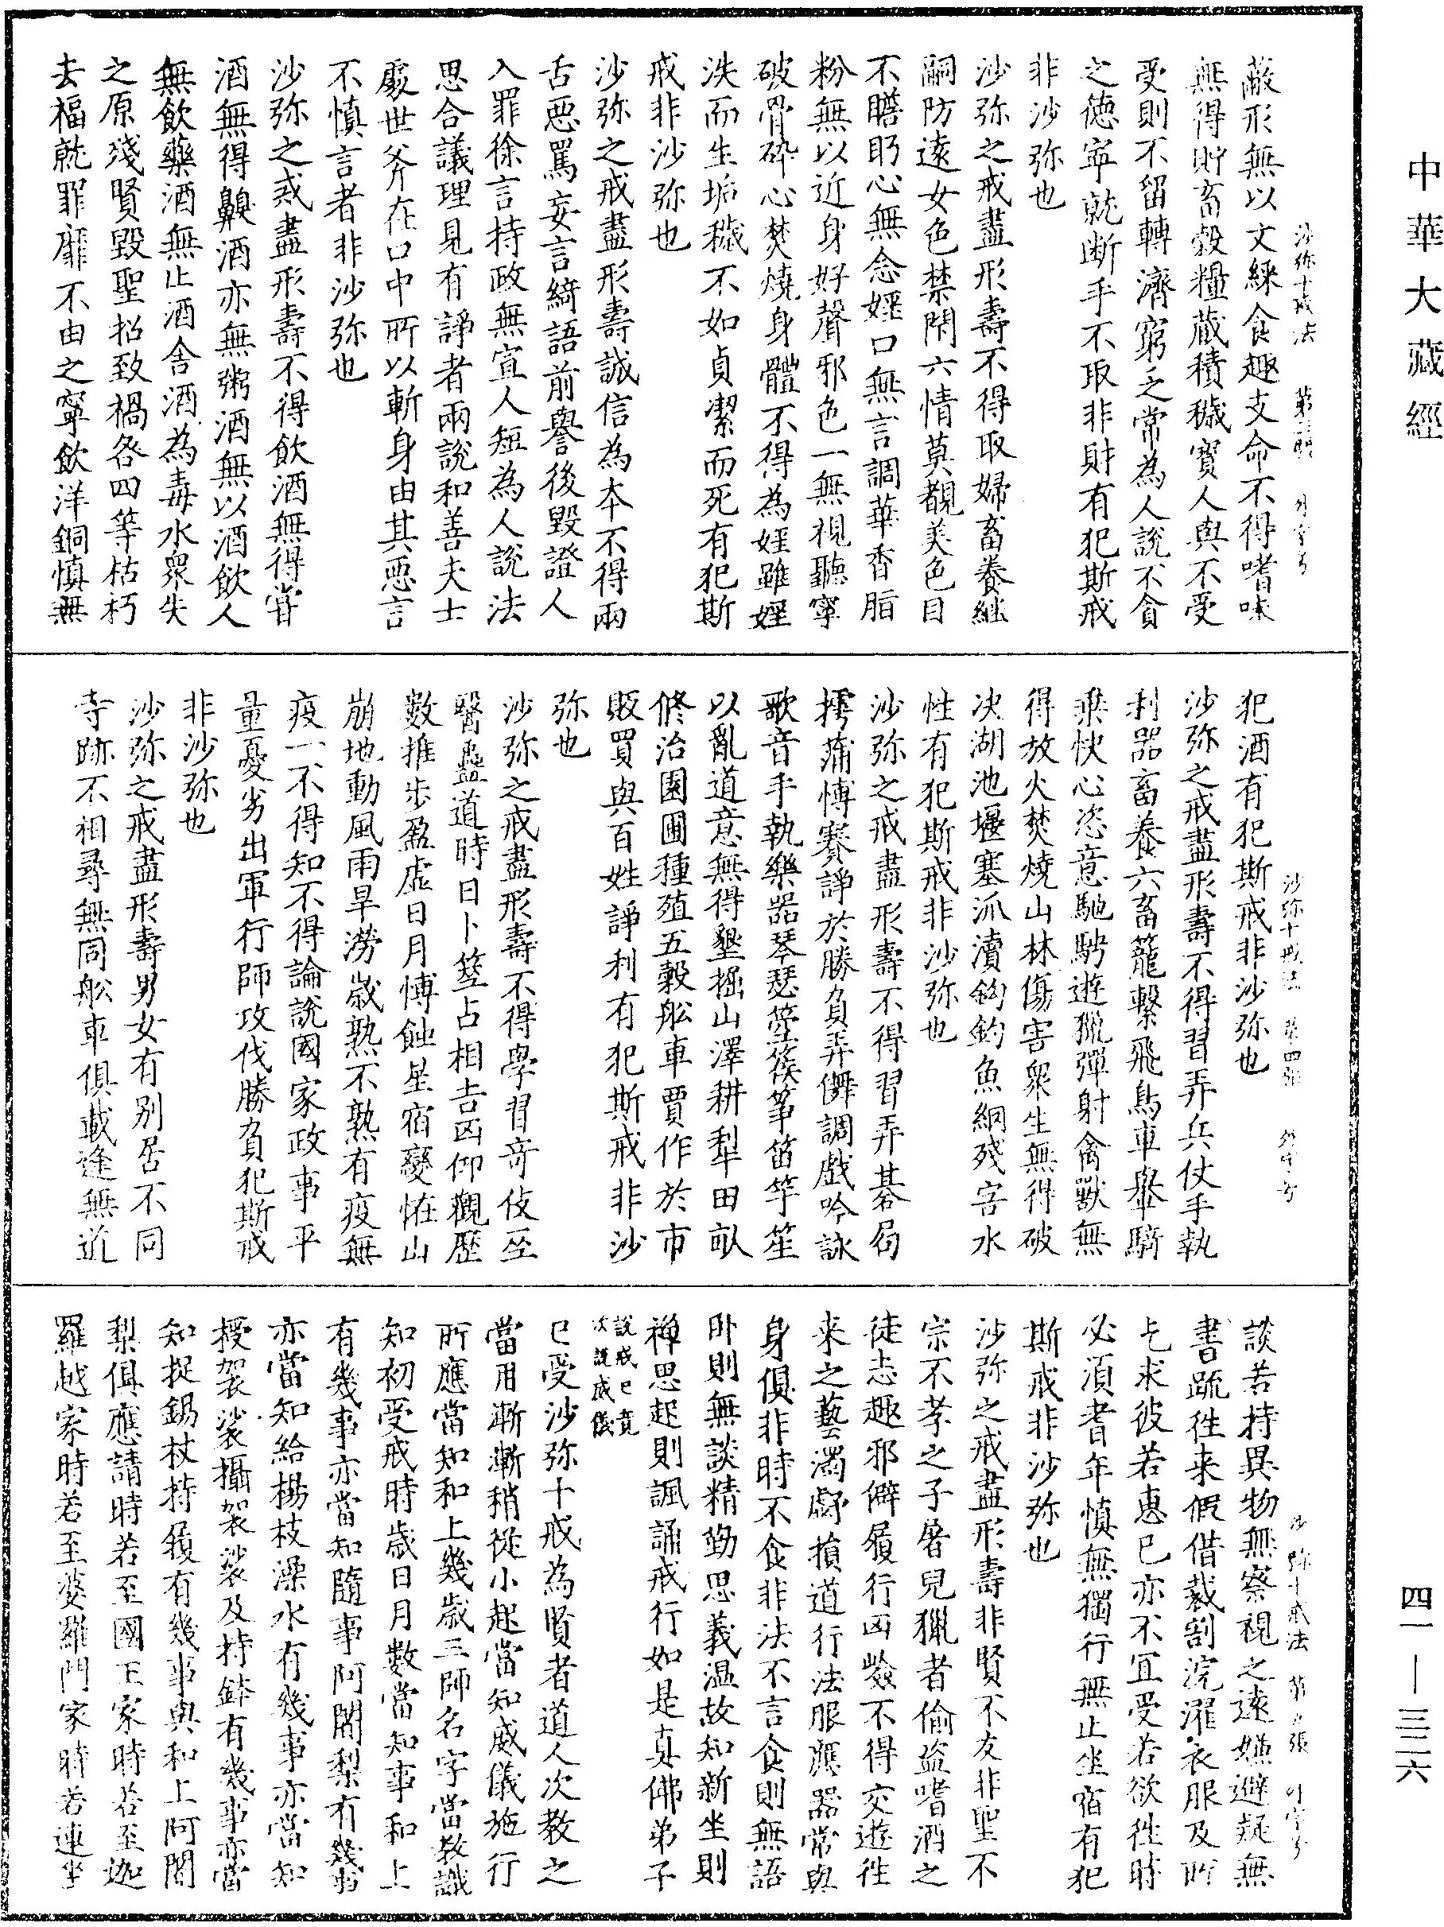 中華大藏經
蔽形無以文綵食趣支命不得嗜味
無得貯畜穀糧藏積穢寶人與不受
受則不留轉濟窮乏常為人說不貪
之德寧就斷手不取非財有犯斯戒
非沙弥也
沙弥之戒盡形壽不得取婦畜養継
嗣防遠女色禁閇六情莫覩美色目
不瞻眄心無念婬口無言調華香脂
粉無以近身好聲邪色一無視聽寧
破骨碎心焚燒身體不得為婬雖婬
泆而生垢穢不如貞潔而死有犯斯
戒非沙弥也
沙弥之戒盡形壽誠信為本不得兩
舌惡罵妄言綺語前譽後毀證人
入罪徐言持政無宣人短為人說法
思合議理見有諍者兩說和善夫士
處世斧在口中所以斬身由其惡言
不慎言者非沙弥也
沙弥之戒盡形壽不得飲酒無得甞
酒無得齅酒亦無粥酒無以酒飲人
無飲藥酒無止酒舍酒為毒水衆失
之原殘賢毀聖招致禍咎四等枯朽
去福就罪靡不由之寧飲洋銅慎無
沙弥十戒法 第三張
犯酒有犯斯戒非沙弥也
沙弥之戒盡形壽不得習弄兵仗手執
利器畜養六畜籠繫飛鳥車轝騎
乘快心恣意馳騁遊獵彈射禽獸無
得放火焚燒山林傷害衆生無得破
决湖池堰塞泒瀆鈎釣魚網殘害水
性有犯斯戒非沙弥也
沙弥之戒盡形壽不得習弄碁局
摴蒲愽賽諍於勝負弄儛調戲吟詠
歌音手執樂器琴瑟箜篌筝笛竽笙
以亂道意無得墾掘山澤耕犁田畝
修治園圃種殖五穀舩車賈作於市
販買與百姓諍利有犯斯戒非沙
弥也
沙弥之戒盡形壽不得學習竒伎巫
醫蠱道時日卜筮占相吉凶仰觀歷
數推步盈虛日月愽蝕星宿變恠山
崩地動風雨旱澇歲熟不熟有疫無
疫一不得知不得論說國家政事平
量憂劣出軍行師攻伐勝負犯斯戒
非沙弥也
沙弥之戒盡形壽男女有别居不同
寺跡不相尋無同舩車俱載逢無道
沙弥十戒法 第四張
談若持異物無察視之遠嫌避疑無
書䟽徃来假借裁割浣濯衣服及所
乞求彼若惠已亦不冝受若欲徃時
必須耆年慎無獨行無止坐宿有犯
斯戒非沙弥也
沙弥之戒盡形壽非賢不友非聖不
宗不孝之子屠兒獵者偷盜嗜酒之
徒志趣邪僻履行凶嶮不得交遊徃
来之藝濁劇損道行法服應器常與
身俱非時不食非法不言食則無語
卧則無談精勤思義温故知新坐則
禅思起則諷誦戒行如是真佛弟子
說戒已竟
次說威儀
已受沙弥十戒為賢者道人次教之
當用漸漸稍從小起當知威儀施行
所應當知和上幾歲三師名字當教識
知初受戒時歲日月數當知事和上
有幾事亦當知隨事阿闍梨有幾事
亦當知給楊枝澡水有幾事亦當知
授袈裟攝袈裟及持鉢有幾事亦當
知捉錫杖持履有幾事與和上阿闍
梨俱應請時若至國王家時若至迦
羅越家時若至婆羅門家時若連坐
沙弥十戒法 第五張
四一—三二六